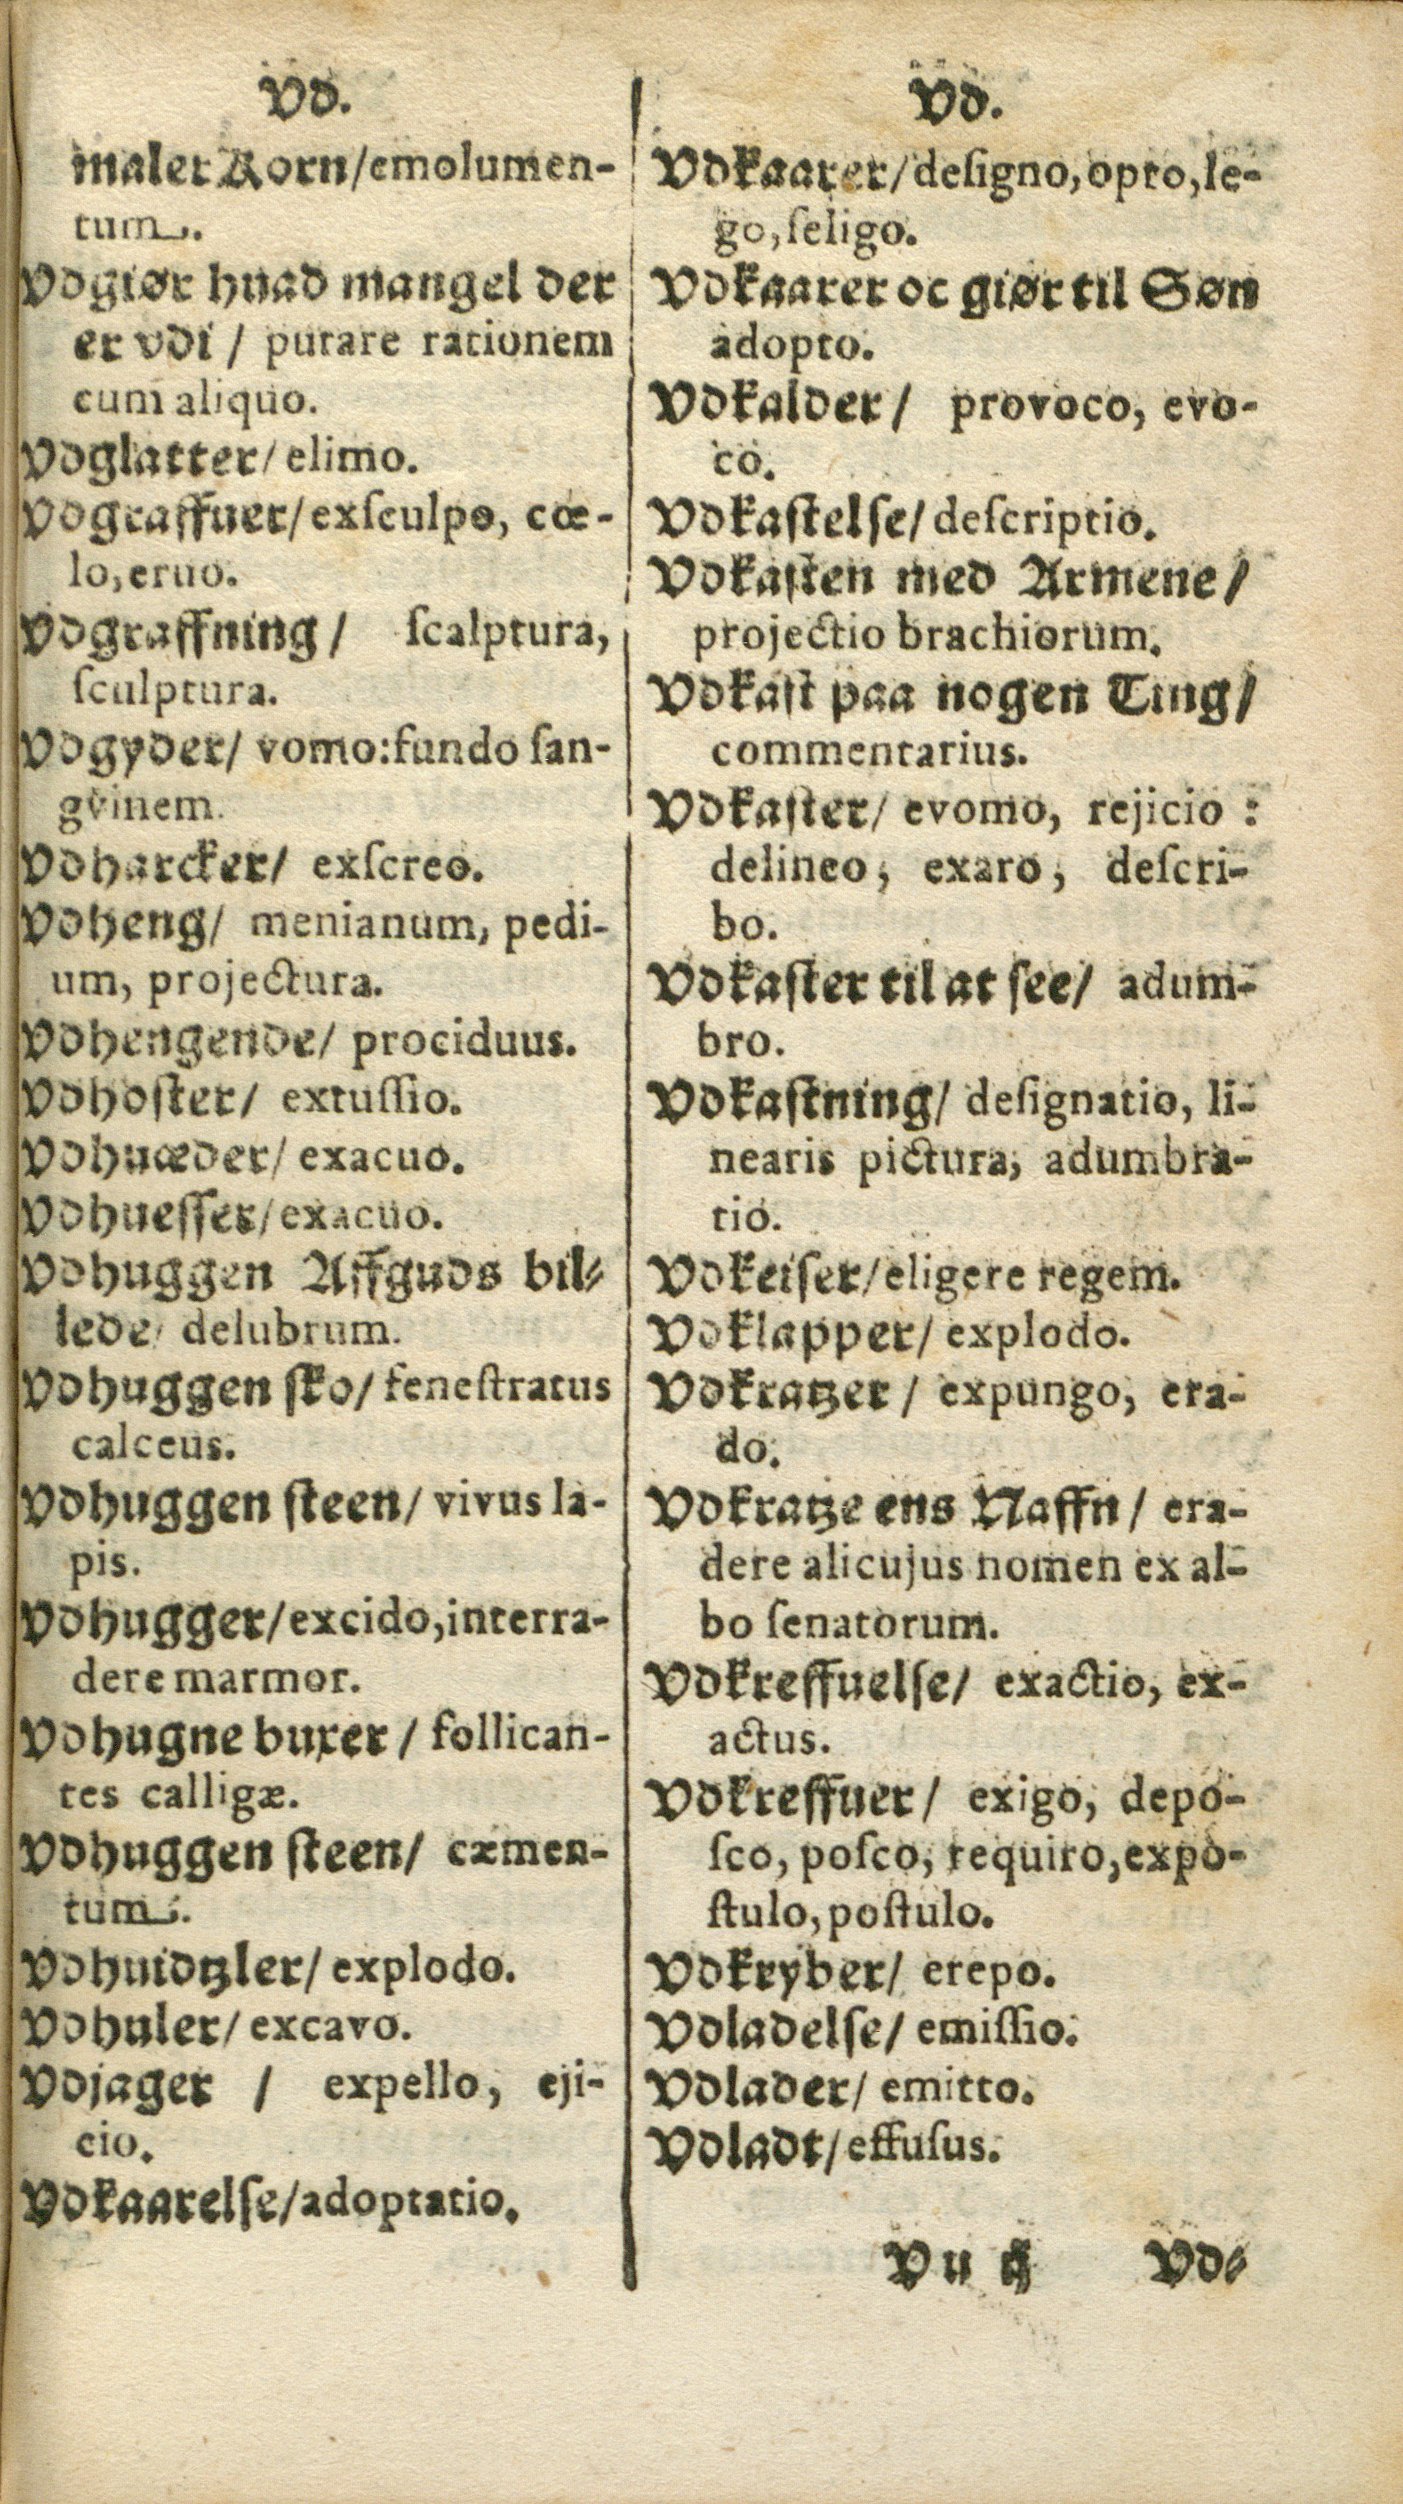 Vd.
maler Korn/emolumen-
tum.
Vdgiør huad mangel der
er vdi / putare rationem
cum aliquo.
Vdglatter/ elimo.
Vdgraffuer/exſculpo, cœ-
lo, eruo.
Vdgraffning/ ſcalptura,
ſculptura.
Vdgyder/ vomo:fundo ſan-
gvinem.
Vdharcker/ exſcreo.
Vdheng/ menianum, pedi-
um, projectura.
Vdhengende/ prociduus.
Vdhoſter/ extuſſio.
Vdhuæder/ exacuo.
Vdhueſſer/exacuo.
Vdhuggen Affguds bil⸗
lede/ delubrum.
Vdhuggen ſko/ feneſtratus
calceus.
Vdhuggen ſteen/ vivus la-
pis.
Vdhugger/excido,interra-
dere marmor.
Vdhugne buxer / follican-
tes calligæ.
Vdhuggen ſteen/ cæmen-
tum.
Vdhuidtzler/ explodo.
Vdhuler/ excavo.
Vdjager / expello, eji-
cio.
Vdkaarelſe/adoptatio.
Vd.
Vdkaarer/deſigno,opto,le-
go,ſeligo.
Vdkaarer oc giør til Søn
adopto.
Vdkalder/ provoco, evo-
co.
Vdkaſtelſe/ deſcriptio.
Vdkaſten med Armene/
projectio brachiorum.
Vdkaſt paa nogen Ting/
commentarius.
Vdkaſter/ evomo, rejicio :
delineo, exaro, deſcri-
bo.
Vdkaſter til at ſee/ adum-
bro.
Vdkaſtning/ deſignatio, li-
nearis pictura, adumbra-
tio.
Vdkeiſer/eligere regem.
Vdklapper/ explodo.
Vdkratzer / expungo, era-
do.
Vdkratze ens Naffn/ era-
dere alicujus nomen ex al-
bo ſenatorum.
Vdkreffuelſe/ exactio, ex-
actus.
Vdkreffuer/ exigo, depo-
ſco, poſco, requiro,expo-
ſtulo, poſtulo.
Vdkryber/ erepo.
Vdladelſe/ emiſſio.
Vdlader/ emitto.
Vdladt/effuſus.
Vu ij Vd⸗